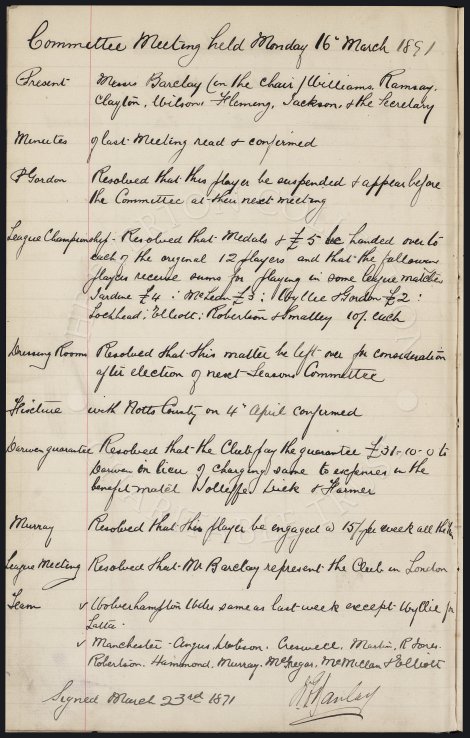 Committee Meeting held Monday 16th March 1891
Present Messrs Barclay (in the chair) Williams, Ramsay,
Clayton, Wilson, Fleming, Jackson, & the Secretary
Minutes of last Meeting read & confirmed
P Gordon Resolved that this player be suspended & appear before
the Committee at their next meeting
League Championship - Resolved that Medals & £5 be handed over to
each of the original 12 players and that the following
players receive sums for playing in some league matches
Jardine £4 : McLean £3 : Wyllie & Gordon £2 :
Lochhead, Elliott, Robertson & Smalley 10/- each
Dressing Rooms Resolved that this matter be left over for consideration
after election of next Seasons Committee
Fixture with Notts County on 4th April confirmed
Darwen guarantee Resolved that the Club pay the guarantee £31-10-0 to
Darwen in lieu of charging same to expenses in the
benefit match Dick & Farmer
Murray Resolved that this player be engaged @ 15/- per week all the
League Meeting Resolved that Mr Barclay represent the Club in London
Team v Wolverhampton Wdrs same as last week except Wyllie for
Latta.
v Manchester - Angus, Dobson, Creswell, Martin, R Jones.
Robertson, Hammond, Murray, McGregor, McMillan & Elliott
Signed March 23rd 1891